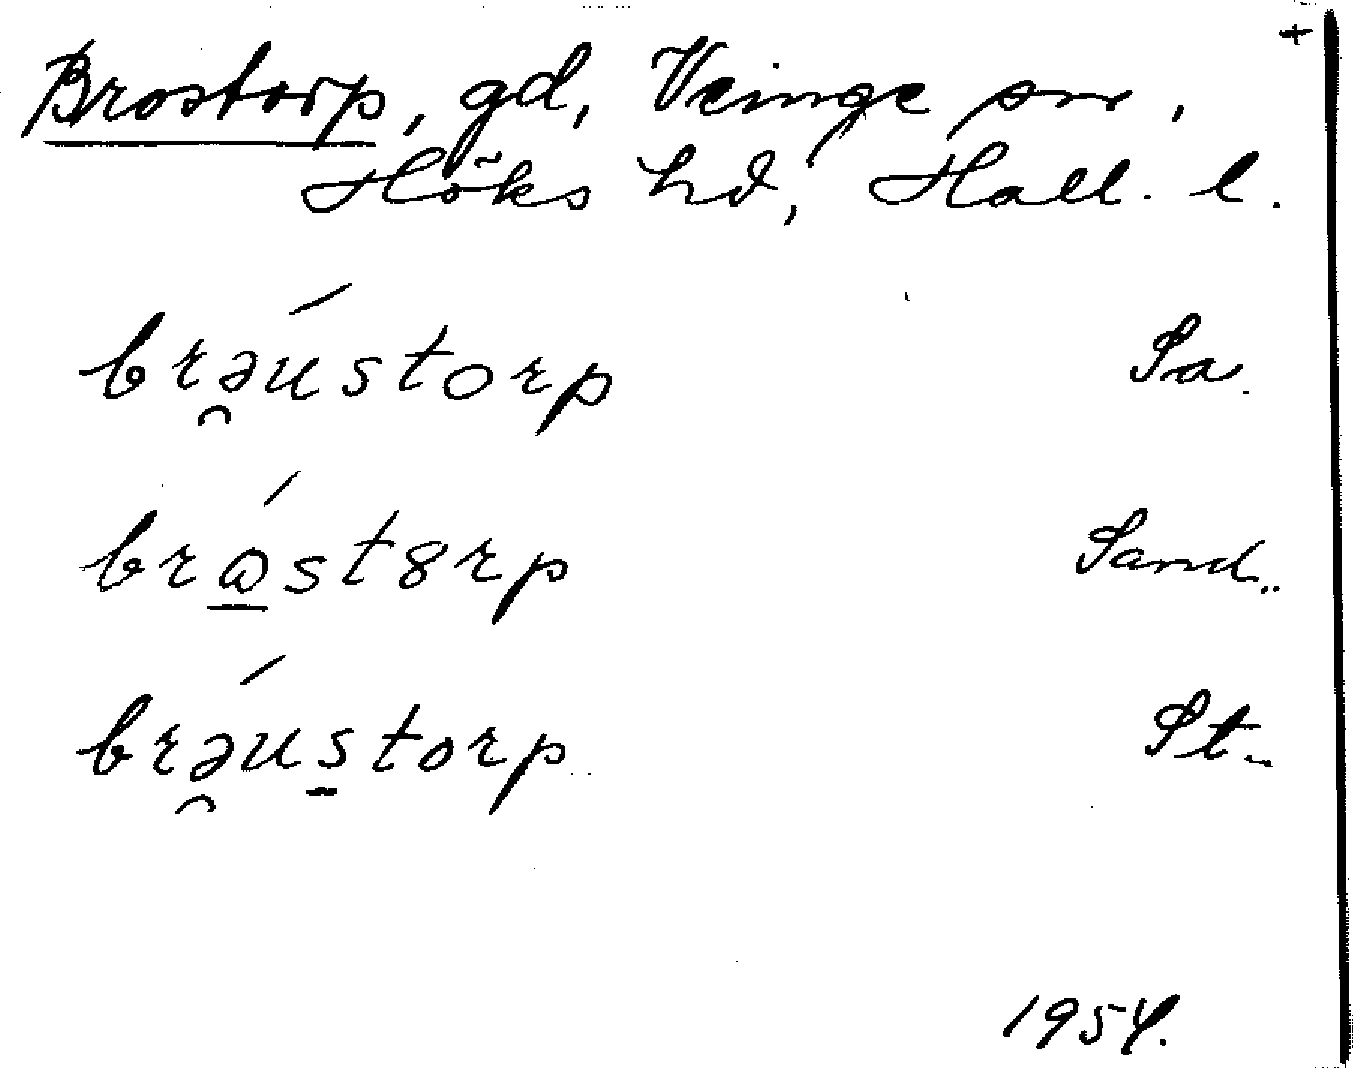 +
Brostorp, gd, Veinge sn,
Höks hd, Hall. l.
brə̯ústorp Sa.
brǫ̲́st8rp Sand.
brə̯ús̲torp St.
1954.